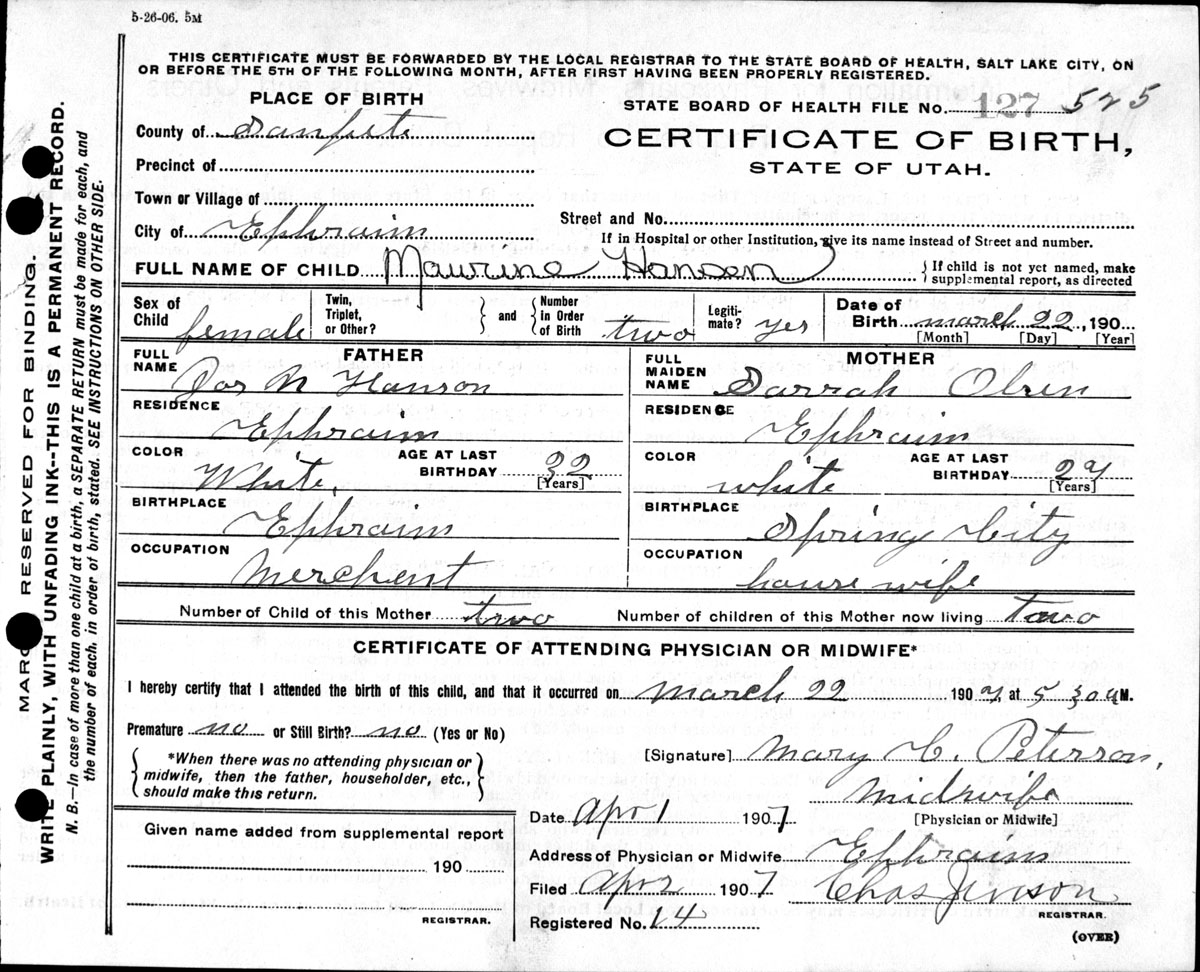 5-26-06. 5M
THIS CERTIFICATE MUST BE FORWARDED BY THE LOCAL REGISTRAR TO THE STATE BOARD OF HEALTH, SALT LAKE CITY, ON
OR BEFORE THE 5TH OF THE FOLLOWING MONTH, AFTER FIRST HAVING BEEN PROPERLY REGISTERED.
PLACE OF BIRTH
STATE BOARD OF HEALTH FILE No. 127 525
County of Sanpete
CERTIFICATE OF BIRTH,
STATE OF UTAH.
Precinct of
Town or Village of
Street and No.
City of Ephraim
If in Hospital or other Institution, give its name instead of Street and number.
FULL NAME OF CHILD Maurine Hansen
If child is not yet named, make
supplemental report, as directed
Sex of Child female
Twin, Triplet, or Other?
and
Number in Order of Birth two
Legitimate? yes
Date of Birth march 22, 190
[Month] [Day] [Year]
FATHER
MOTHER
FULL NAME Jos N Hanson
FULL MAIDEN NAME Sarrah Olsen
RESIDENCE Ephraim
RESIDENCE Ephraim
COLOR White.
AGE AT LAST BIRTHDAY 32
[Years]
COLOR white
AGE AT LAST BIRTHDAY 27
[Years]
BIRTHPLACE Ephraim
BIRTHPLACE Spring City
OCCUPATION Merchent
OCCUPATION house wife
Number of Child of this Mother two
Number of children of this Mother now living two
CERTIFICATE OF ATTENDING PHYSICIAN OR MIDWIFE*
I hereby certify that I attended the birth of this child, and that it occurred on march 22 1907, at 5 30 a M.
Premature no or Still Birth? no (Yes or No)
*When there was no attending physician or
midwife, then the father, householder, etc.,
should make this return.
[Signature] Mary C. Peterson,
Midwife
[Physician or Midwife]
Date Apr 1 1907
Given name added from supplemental report
190
REGISTRAR.
Address of Physician or Midwife Ephraim
Filed Apr 2 1907 Chas Jenson
REGISTRAR.
Registered No. 14
(OVER)
MARGIN RESERVED FOR BINDING.
WRITE PLAINLY, WITH UNFADING INK--THIS IS A PERMANENT RECORD.
N. B.—In case of more than one child at a birth, a SEPARATE RETURN must be made for each, and
the number of each. in order of birth, stated. SEE INSTRUCTIONS ON OTHER SIDE.